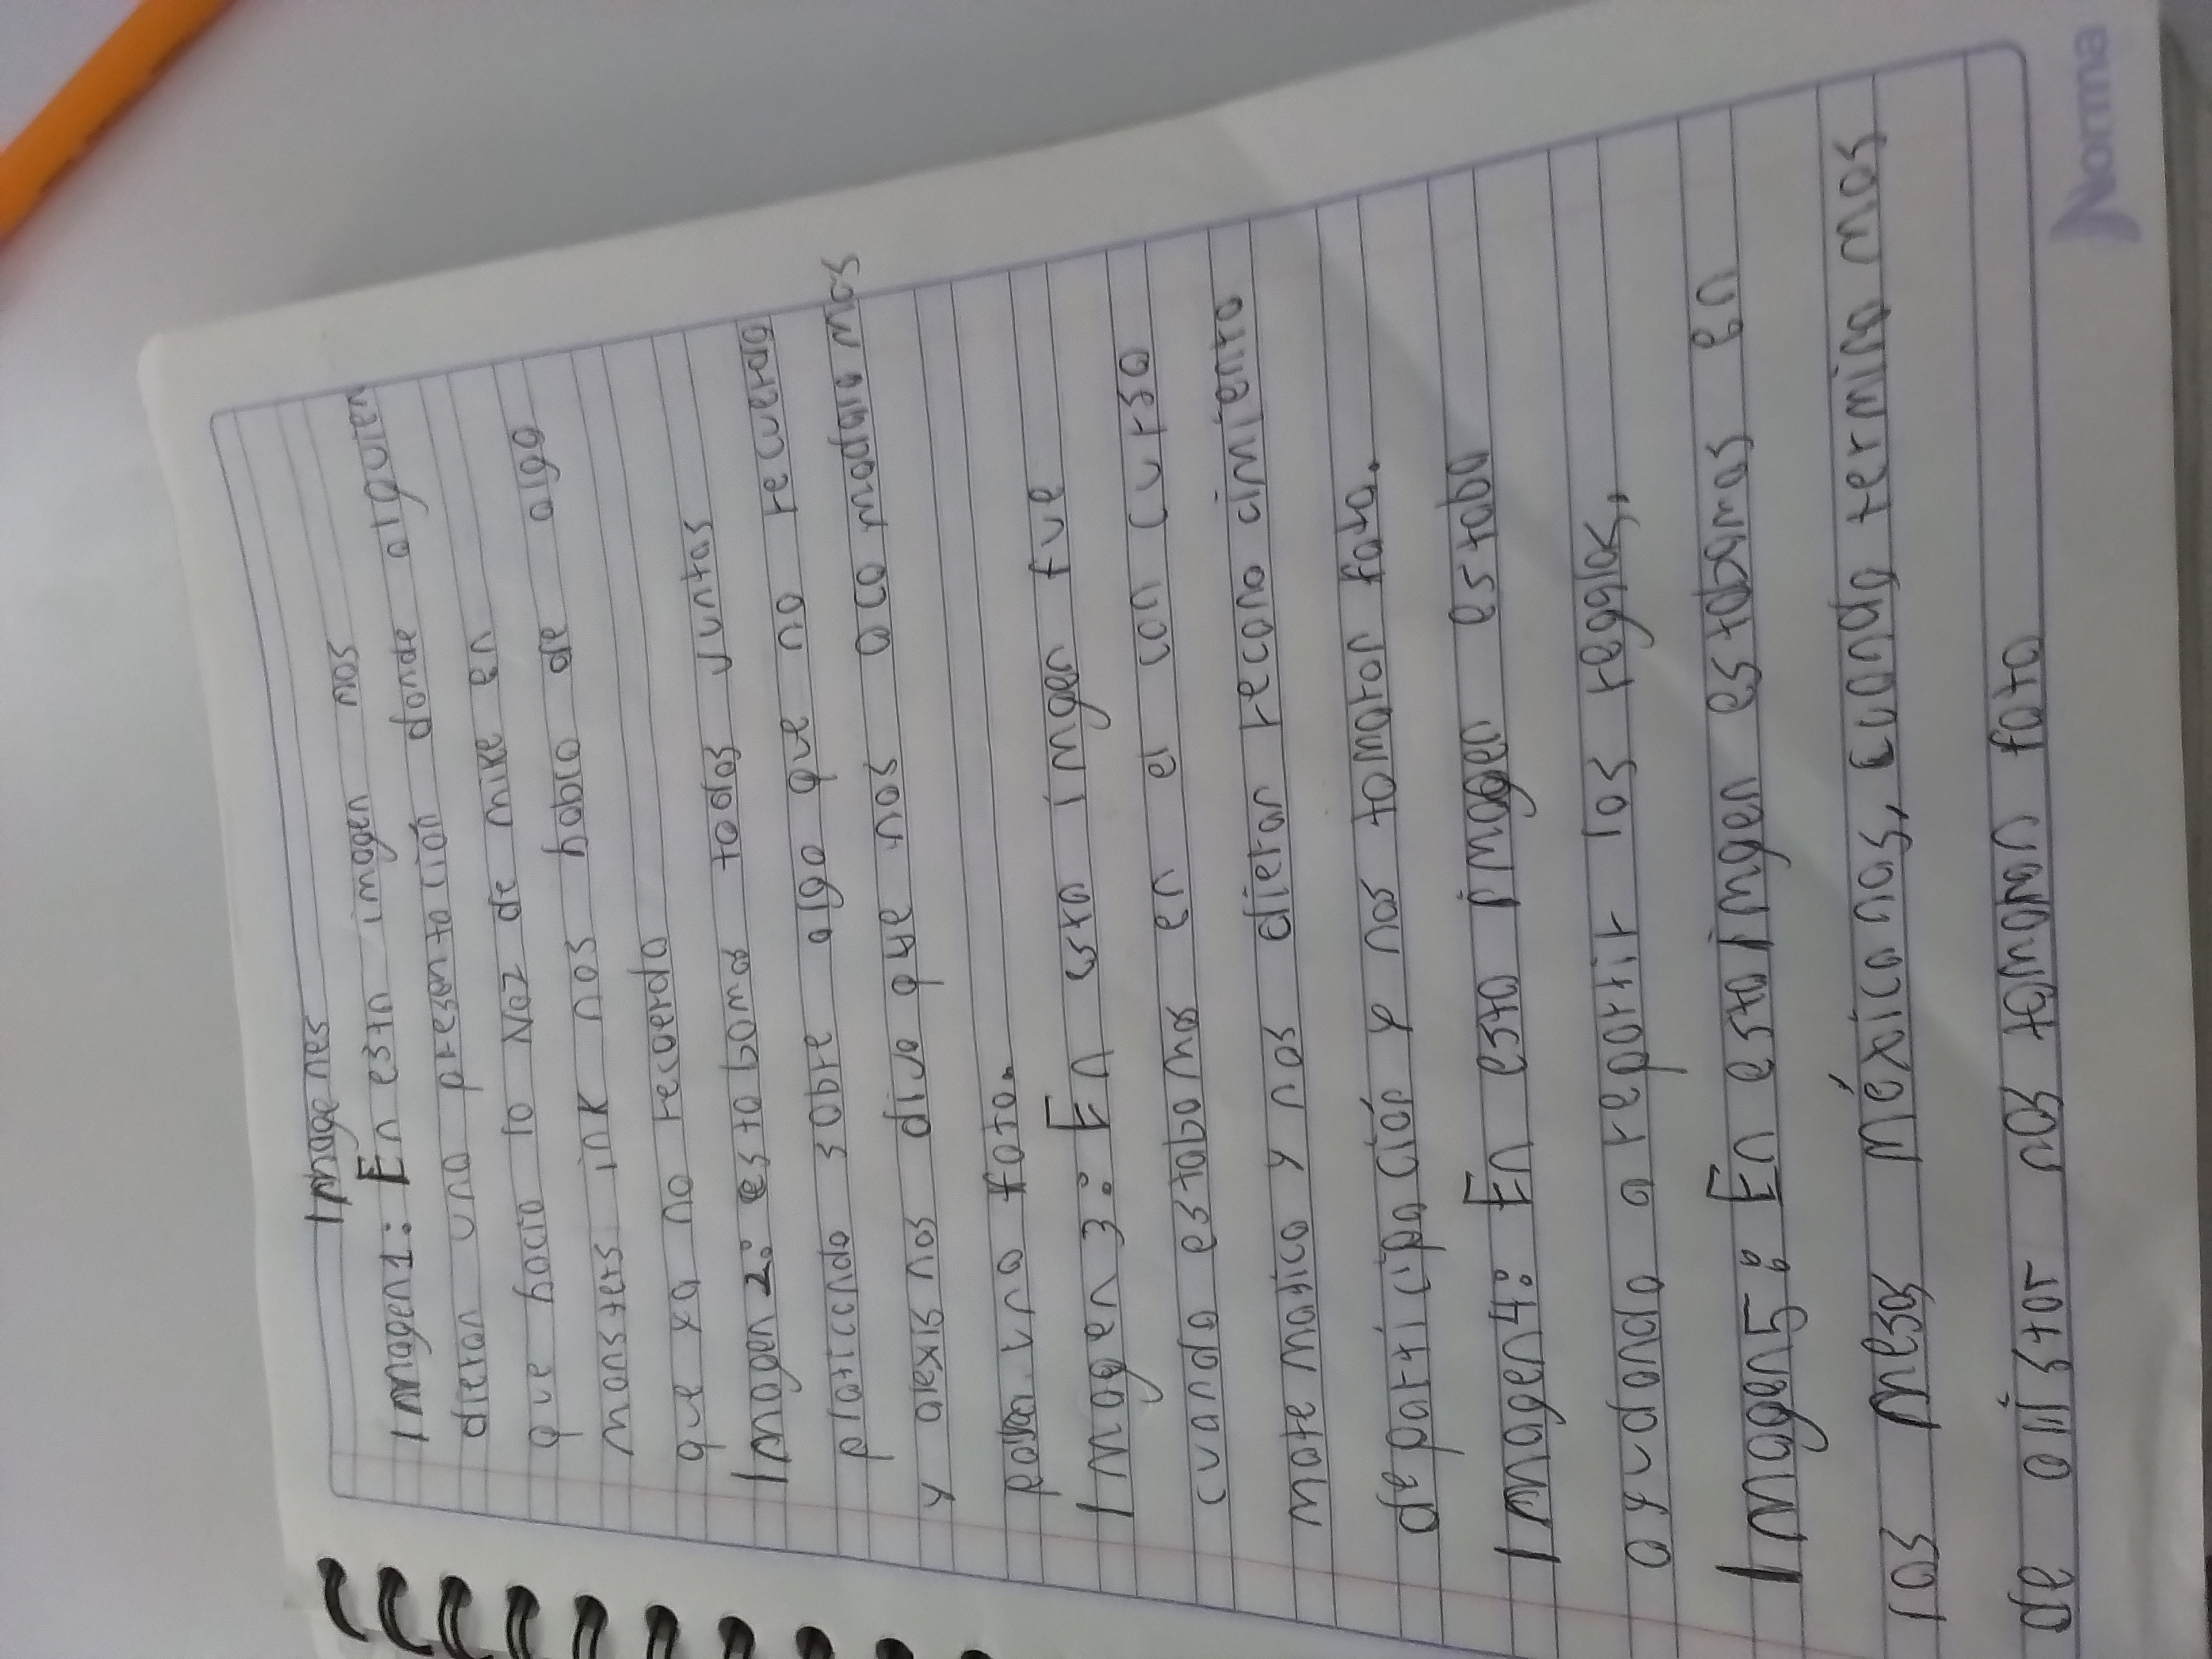 Imagenes
Imagen1: En esta imagen nos
dieron una presentación donde alguien
que hacia la Voz de mike en
monsters ink nos hablo de algo
que ya no recuerdo
Imagen 2: estabamos todos juntos
platicando sobre algo que no recuerdo
y alexis nos dijo que nos acomodaramos
para una foto.
Imagen 3: En esta imgen fue
cuando estabamos en el concurso
matematico y nos dieron reconocimiento
de participación y nos tomaron foto.
Imagen4: En esta imagen estaba
ayudando a repartir las reglas,
Imagen5: En esta imgen estabamos en
las mesas méxicanas, cuando terminamos
de alistar nos tomaron foto
Norma